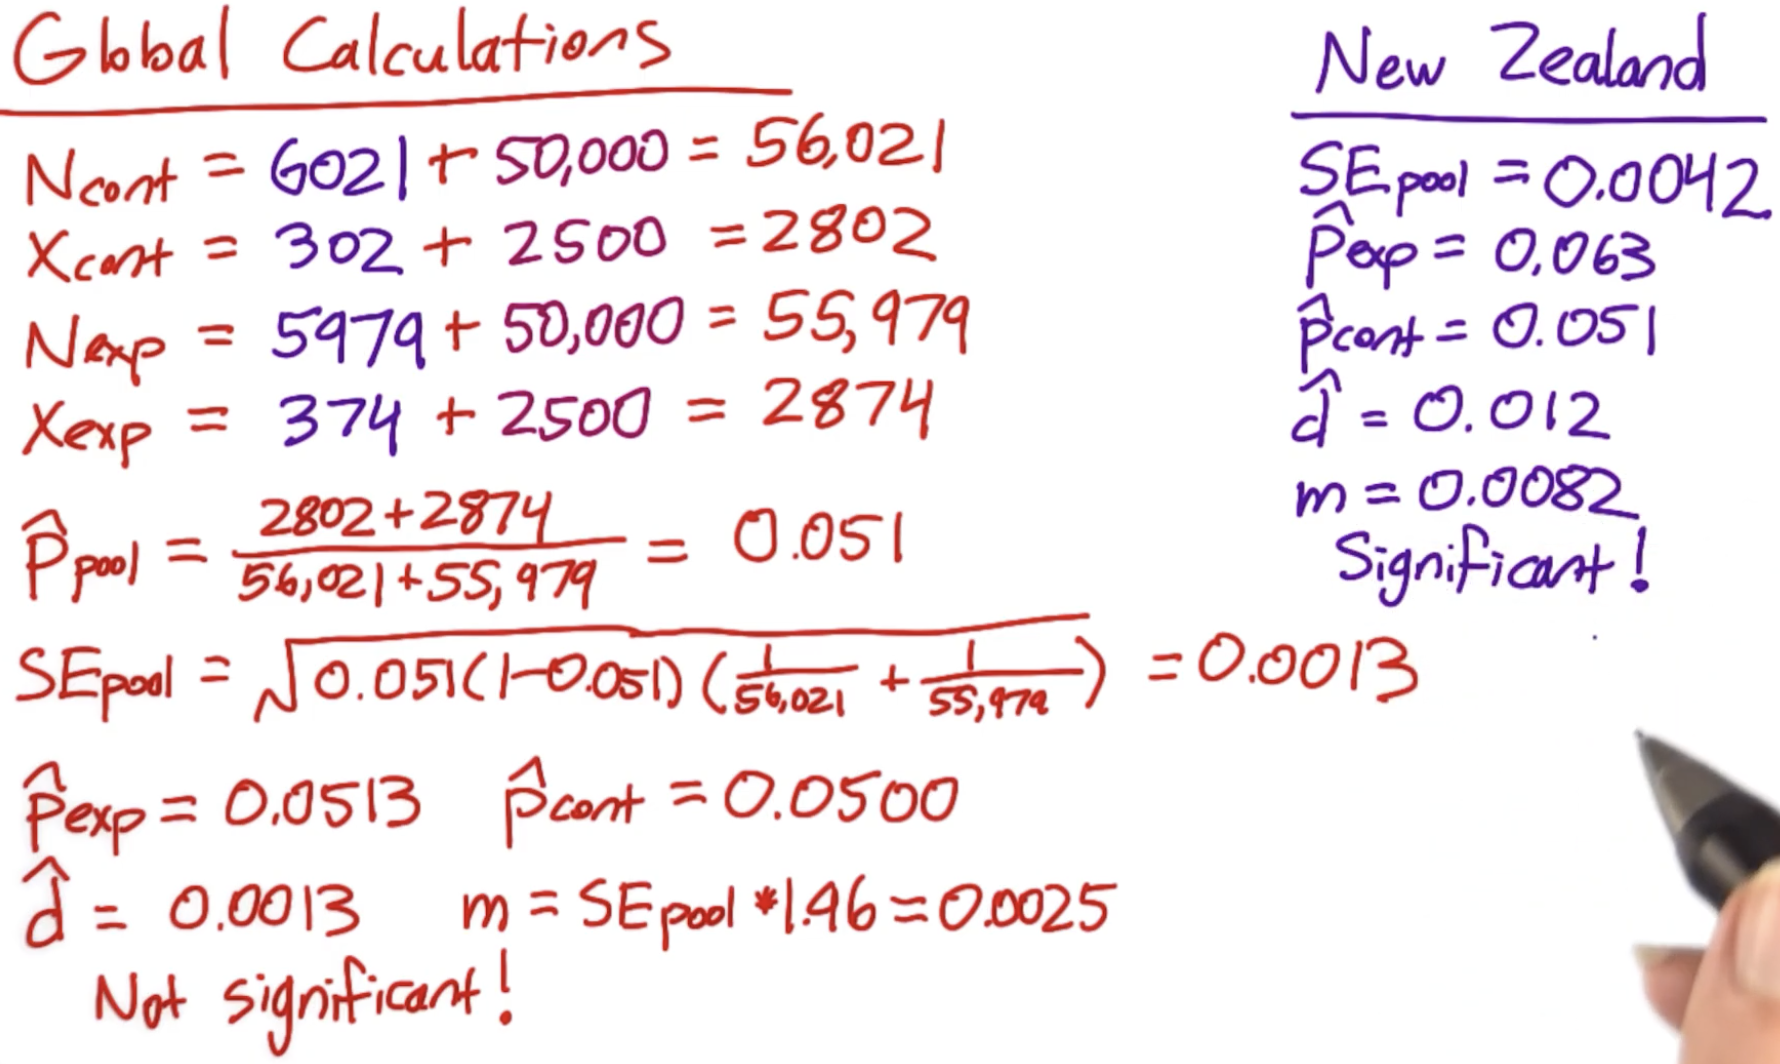 Global Calculations
Ncont = 6021 + 50,000 = 56,021
Xcont = 302 + 2500 = 2802
Nexp = 5979 + 50,000 = 55,979
Xexp = 374 + 2500 = 2874
p̂pool = (2802+2874)/(56,021+55,979) = 0.051
SEpool = √(0.051(1-0.051)(1/56,021 + 1/55,979)) = 0.0013
p̂exp = 0.0513 p̂cont = 0.0500
d̂ = 0.0013 m = SEpool *1.96 = 0.0025
Not significant!
New Zealand
SEpool = 0.0042
p̂exp = 0.063
p̂cont = 0.051
d̂ = 0.012
m = 0.0082
Significant!